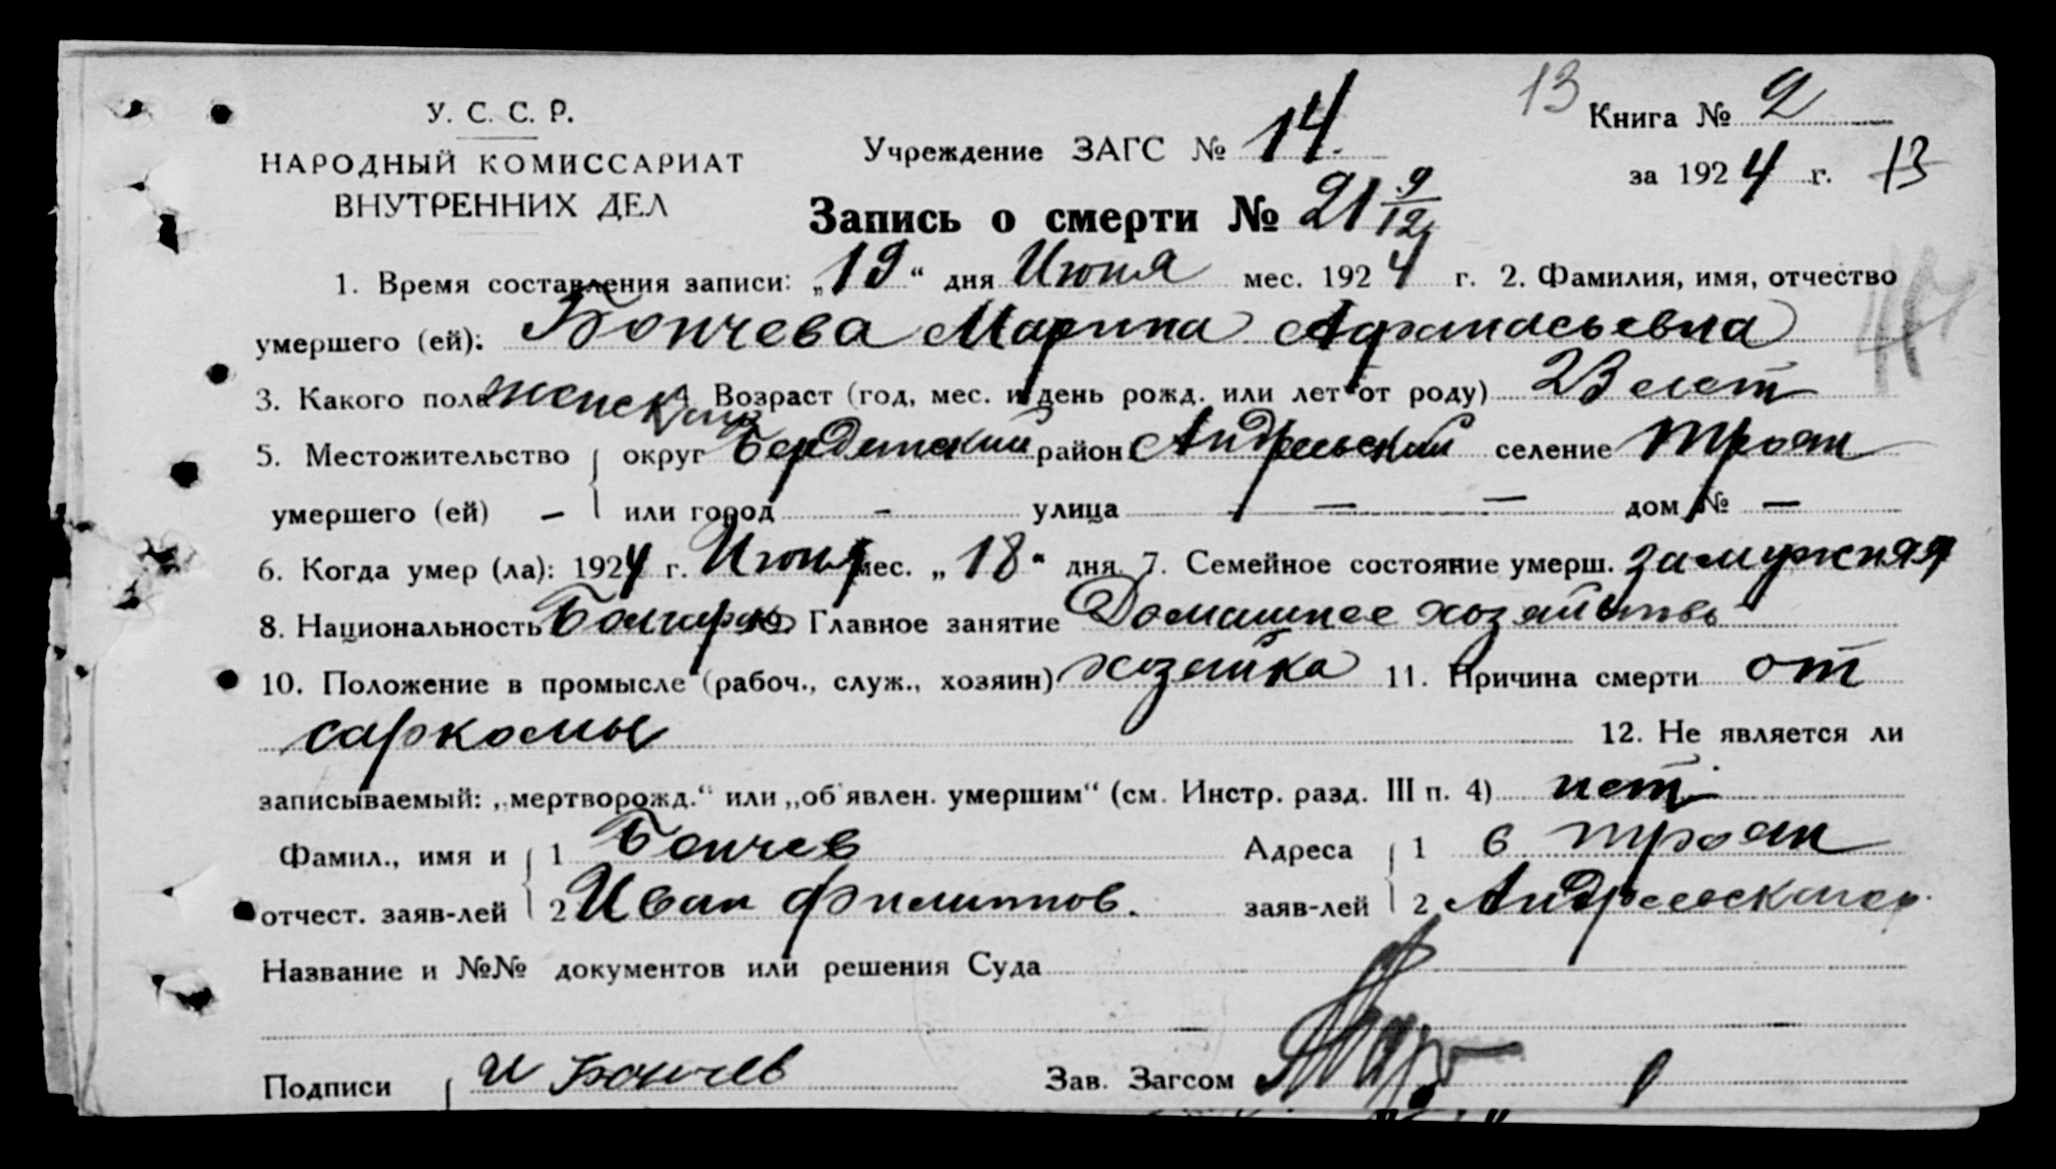 У. С. С. Р.
НАРОДНЫЙ КОМИССАРИАТ
ВНУТРЕННИХ ДЕЛ
13 Книга № 2
Учреждение ЗАГС № 14
за 1924 г. 13
Запись о смерти № 21 9/12
1. Время составления записи: „19“ дня Июня мес. 1924 г. 2. Фамилия, имя, отчество
умершего (ей): Бончева Марина Афанасьевна
3. Какого пола женского 4. Возраст (год, мес. и день рожд. или лет от роду) 23 лет
5. Местожительство округ Бердянский район Андреевский селение Троян
умершего (ей) – или город – улица — — дом № —
6. Когда умер (ла): 1924 г. Июня мес. „18“ дня. 7. Семейное состояние умерш. замужняя
8. Национальность Болгарка 9. Главное занятие Домашнее хозяйство
10. Положение в промысле (рабоч., служ., хозяин) хозяйка 11. Причина смерти от
саркомы 12. Не является ли
записываемый: „мертворожд.“ или „об'явлен. умершим“ (см. Инстр. разд. III п. 4) нет
Фамил., имя и 1 Бончев Адреса 1 в Троян
отчест. заяв-лей 2 Иван Филиппов. заяв-лей 2 Андреевского р.
Название и №№ документов или решения Суда
Подписи И Бончев Зав. Загсом